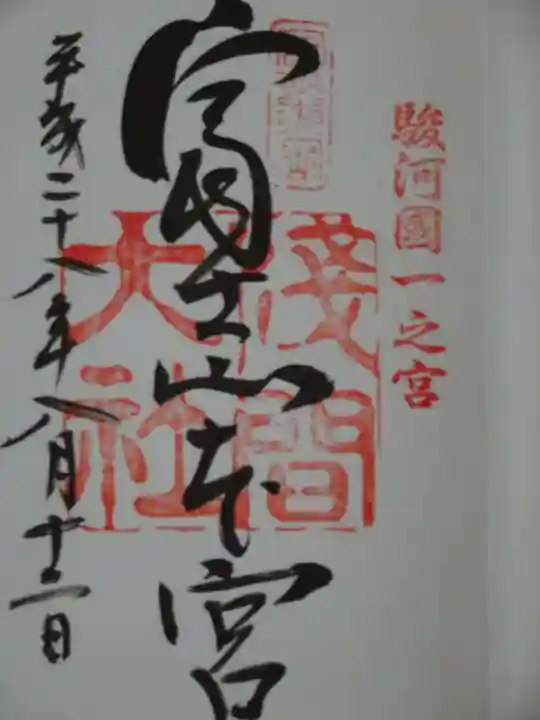 駿河國一之宮
富士山本宮
淺間
大社
平成二十八年八月十二日